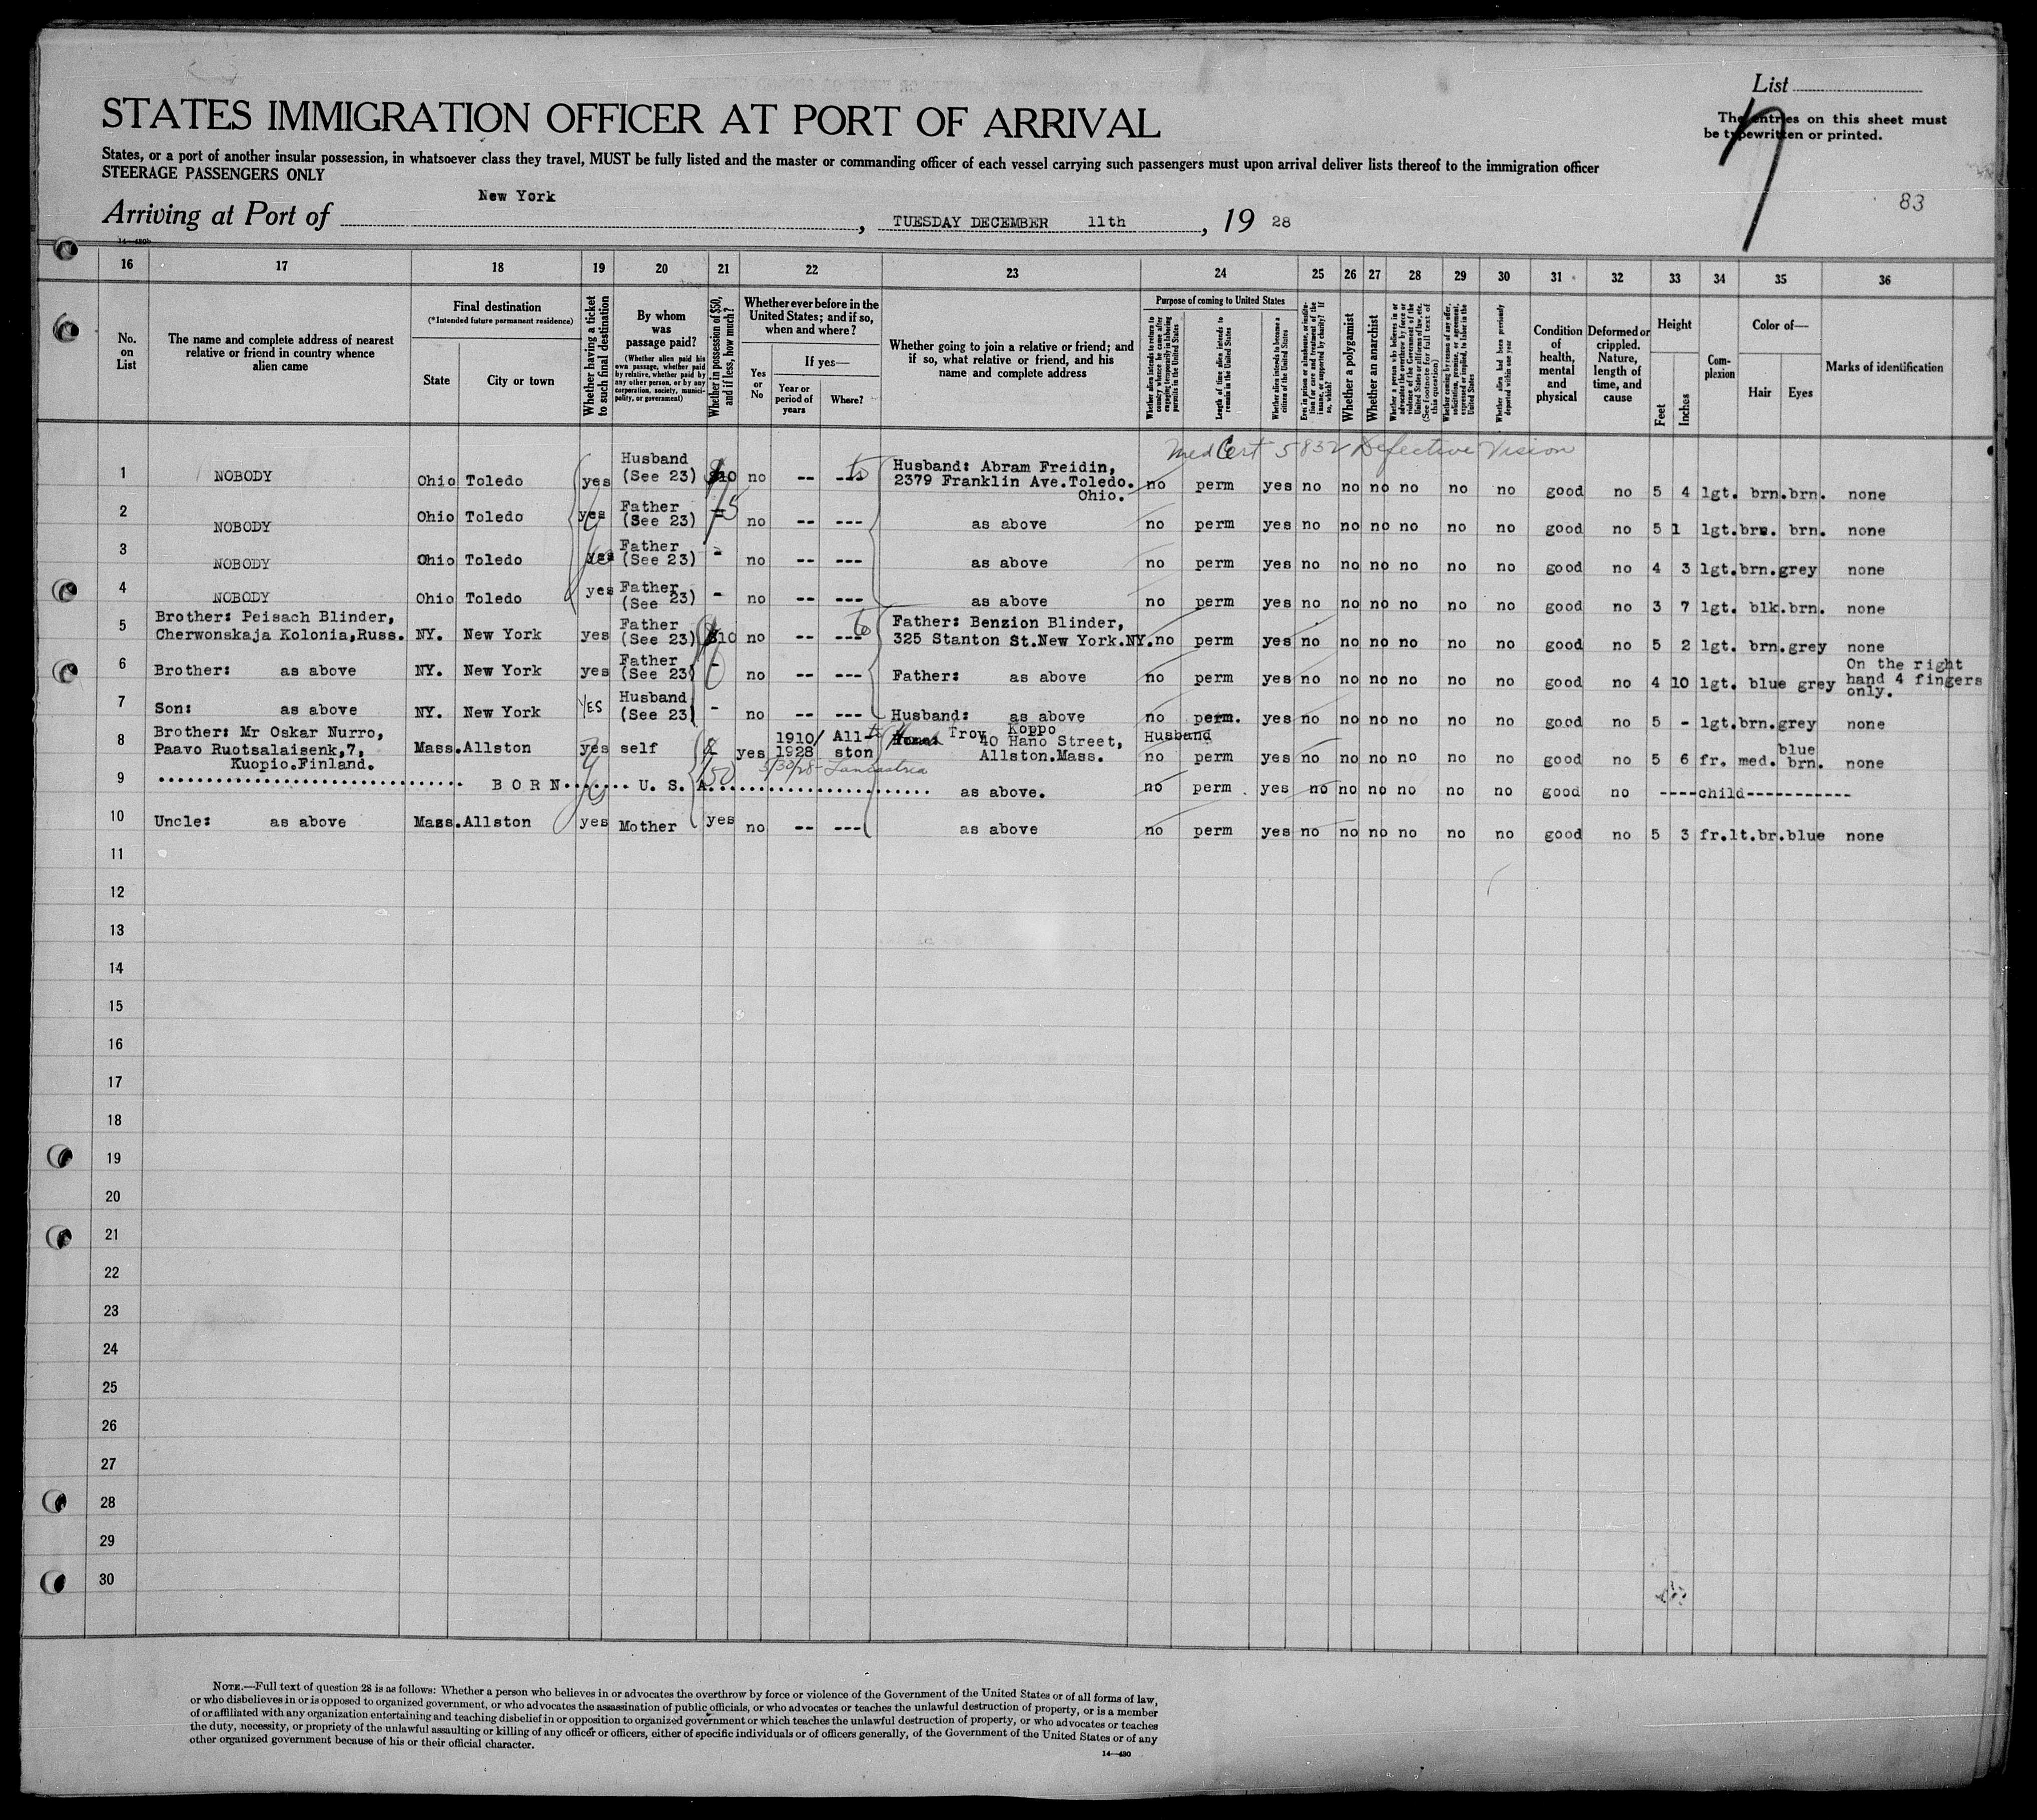 List
The entries on this sheet must
be typewritten or printed.
7
83
STATES IMMIGRATION OFFICER AT PORT OF ARRIVAL
States, or a port of another insular possession, in whatsoever class they travel, MUST be fully listed and the master or commanding officer of each vessel carrying such passengers must upon arrival deliver lists thereof to the immigration officer
STEERAGE PASSENGERS ONLY
Arriving at Port of New York, TUESDAY DECEMBER 11th, 19 28
14—480b
16 17 18 19 20 21 22 23 24 25 26 27 28 29 30 31 32 33 34 35 36
No. on List
The name and complete address of nearest relative or friend in country whence alien came
Final destination
(*Intended future permanent residence)
State
City or town
Whether having a ticket to such final destination
By whom was passage paid?
(Whether alien paid his own passage, whether paid by relative, whether paid by any other person, or by any corporation, society, municipality, or government)
Whether in possession of $50, and if less, how much?
Whether ever before in the United States; and if so, when and where?
Yes or No
If yes—
Year or period of years
Where?
Whether going to join a relative or friend; and if so, what relative or friend, and his name and complete address
Purpose of coming to United States
Whether alien intends to return to country whence he came after engaging temporarily in laboring pursuits in the United States
Length of time alien intends to remain in the United States
Whether alien intends to become a citizen of the United States
Ever in prison or almshouse, or institution for care and treatment of the insane, or supported by charity? If so, which?
Whether a polygamist
Whether an anarchist
Whether a person who believes in or advocates the overthrow by force or violence of the Government of the United States or all forms of law, etc. (See footnote for full text of this question)
Whether coming by reason of any offer, solicitation, promise, or agreement, expressed or implied, to labor in the United States
Whether alien had been previously deported within one year
Condition of health, mental and physical
Deformed or crippled. Nature, length of time, and cause
Height
Feet
Inches
Complexion
Color of—
Hair
Eyes
Marks of identification
Med Cert 5832 Defective Vision
1 NOBODY Ohio Toledo yes Husband (See 23) $10 no -- --- Husband: Abram Freidin, 2379 Franklin Ave.Toledo. Ohio. no perm yes no no no no no no good no 5 4 lgt. brn. brn. none
75
2 NOBODY Ohio Toledo yes Father (See 23) no -- --- as above no perm yes no no no no no no good no 5 1 lgt. brn. brn. none
3 NOBODY Ohio Toledo yes Father (See 23) - no -- --- as above no perm yes no no no no no no good no 4 3 lgt. brn. grey none
4 NOBODY Ohio Toledo yes Father (See 23) - no -- --- as above no perm yes no no no no no no good no 3 7 lgt. blk. brn. none
5 Brother: Peisach Blinder, Cherwonskaja Kolonia,Russ. NY. New York yes Father (See 23) $10 no -- --- Father: Benzion Blinder, 325 Stanton St.New York.NY. no perm yes no no no no no no good no 5 2 lgt. brn. grey none
6 Brother: as above NY. New York yes Father (See 23) - no -- --- Father: as above no perm yes no no no no no no good no 4 10 lgt. blue grey On the right hand 4 fingers only.
7 Son: as above NY. New York YES Husband (See 23) - no -- --- Husband: as above no perm. yes no no no no no no good no 5 - lgt. brn. grey none
8 Brother: Mr Oskar Nurro, Paavo Ruotsalaisenk,7, Kuopio.Finland. Mass. Allston yes self yes 1910/1928 Allston Troy Koppo 40 Hano Street, Allston.Mass. Husband no perm yes no no no no no no good no 5 6 fr. med. blue brn. none
150 5/30/28 - Lancastria
9 BORN U. S. A. as above. no perm yes no no no no no no good no ----child-----------
10 Uncle: as above Mass. Allston yes Mother yes no -- --- as above no perm yes no no no no no no good no 5 3 fr. lt.br. blue none
11
12
13
14
15
16
17
18
19
20
21
22
23
24
25
26
27
28
29
30
NOTE.—Full text of question 28 is as follows: Whether a person who believes in or advocates the overthrow by force or violence of the Government of the United States or of all forms of law,
or who disbelieves in or is opposed to organized government, or who advocates the assassination of public officials, or who advocates or teaches the unlawful destruction of property, or is a member
of or affiliated with any organization entertaining and teaching disbelief in or opposition to organized government or which teaches the unlawful destruction of property, or who advocates or teaches
the duty, necessity, or propriety of the unlawful assaulting or killing of any officer or officers, either of specific individuals or of officers generally, of the Government of the United States or of any
other organized government because of his or their official character.
14—480